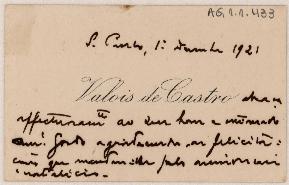 AG.1.1.433
S. Paulo, 1º dezembro 1921
Valois de Castro abraça
affectuosamte ao seu bom e
amº agradecendo as felicita
ções que pelo anniversari
natalicio.